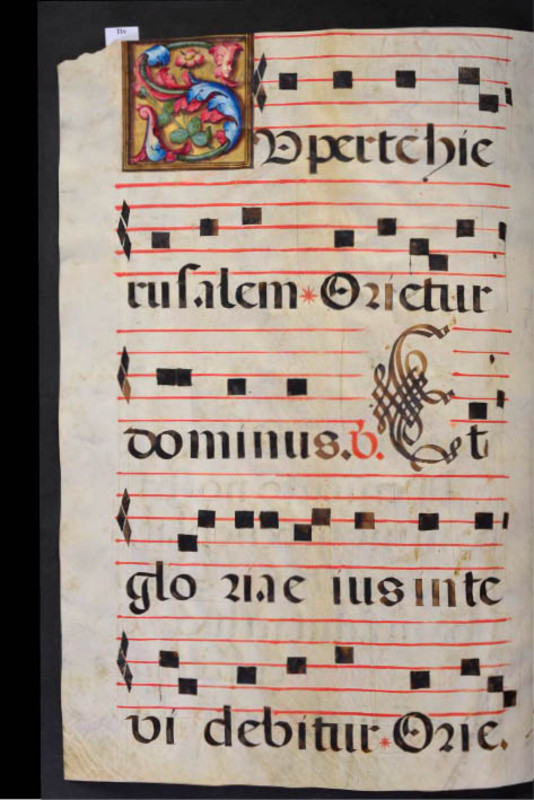 11v
Super te hie
rusalem * Orietur
dominus. ℣. Et
glo ria e ius in te
vi debitur * Orie.